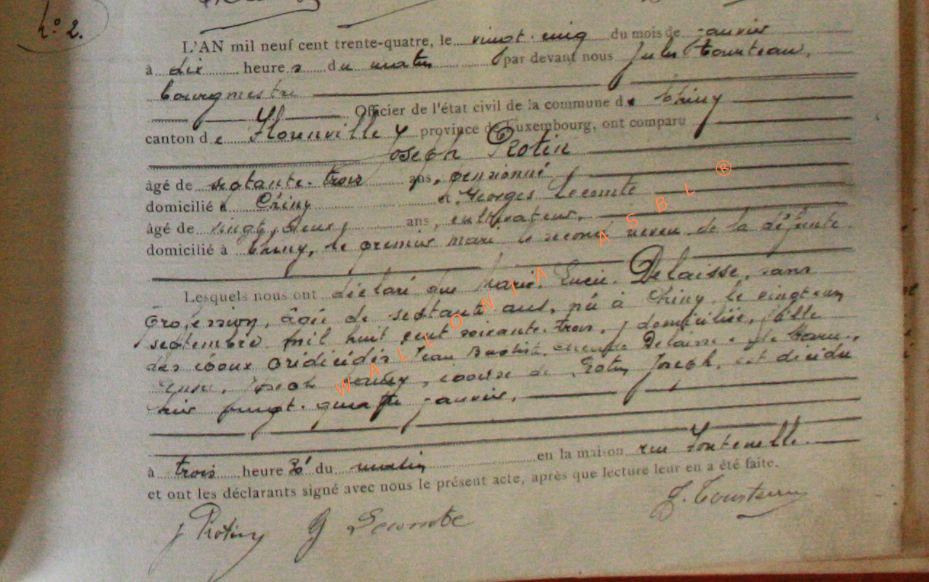 n° 2.
L'AN mil neuf cent trente-quatre, le vingt-cinq du mois de janvier
à dix heures du matin par devant nous Jules
bourgmestre
Officier de l'état civil de la commune de Chiny
canton de Florenville province de Luxembourg, ont comparu
Joseph Protin
âgé de septante-trois ans, pensionné
domicilié à Chiny et Georges Lecomte
âgé de vingt-deux ans, cultivateur,
domicilié à Chiny, le premier mari le second neveu de la défunte
Lesquels nous ont déclaré que Marie Lucie Delaisse, sans
profession, âgée de septante ans, né à Chiny le vingt-un
septembre mil huit cent soixante-trois, y domiciliée, fille
des époux prédécédés Jean Baptiste Delaisse et de
Joseph, épouse de Protin Joseph, est décédée
hier vingt-quatre janvier,
à trois heures du matin en la maison rue Fontenelle
et ont les déclarants signé avec nous le présent acte, après que lecture leur en a été faite.
J Protin G Lecomte
WALLONIA ASBL ®